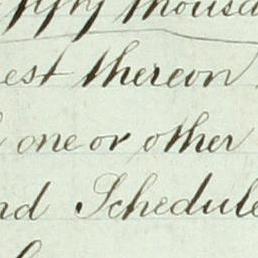 fifty thousa
est thereon
one or other
nd Schedule